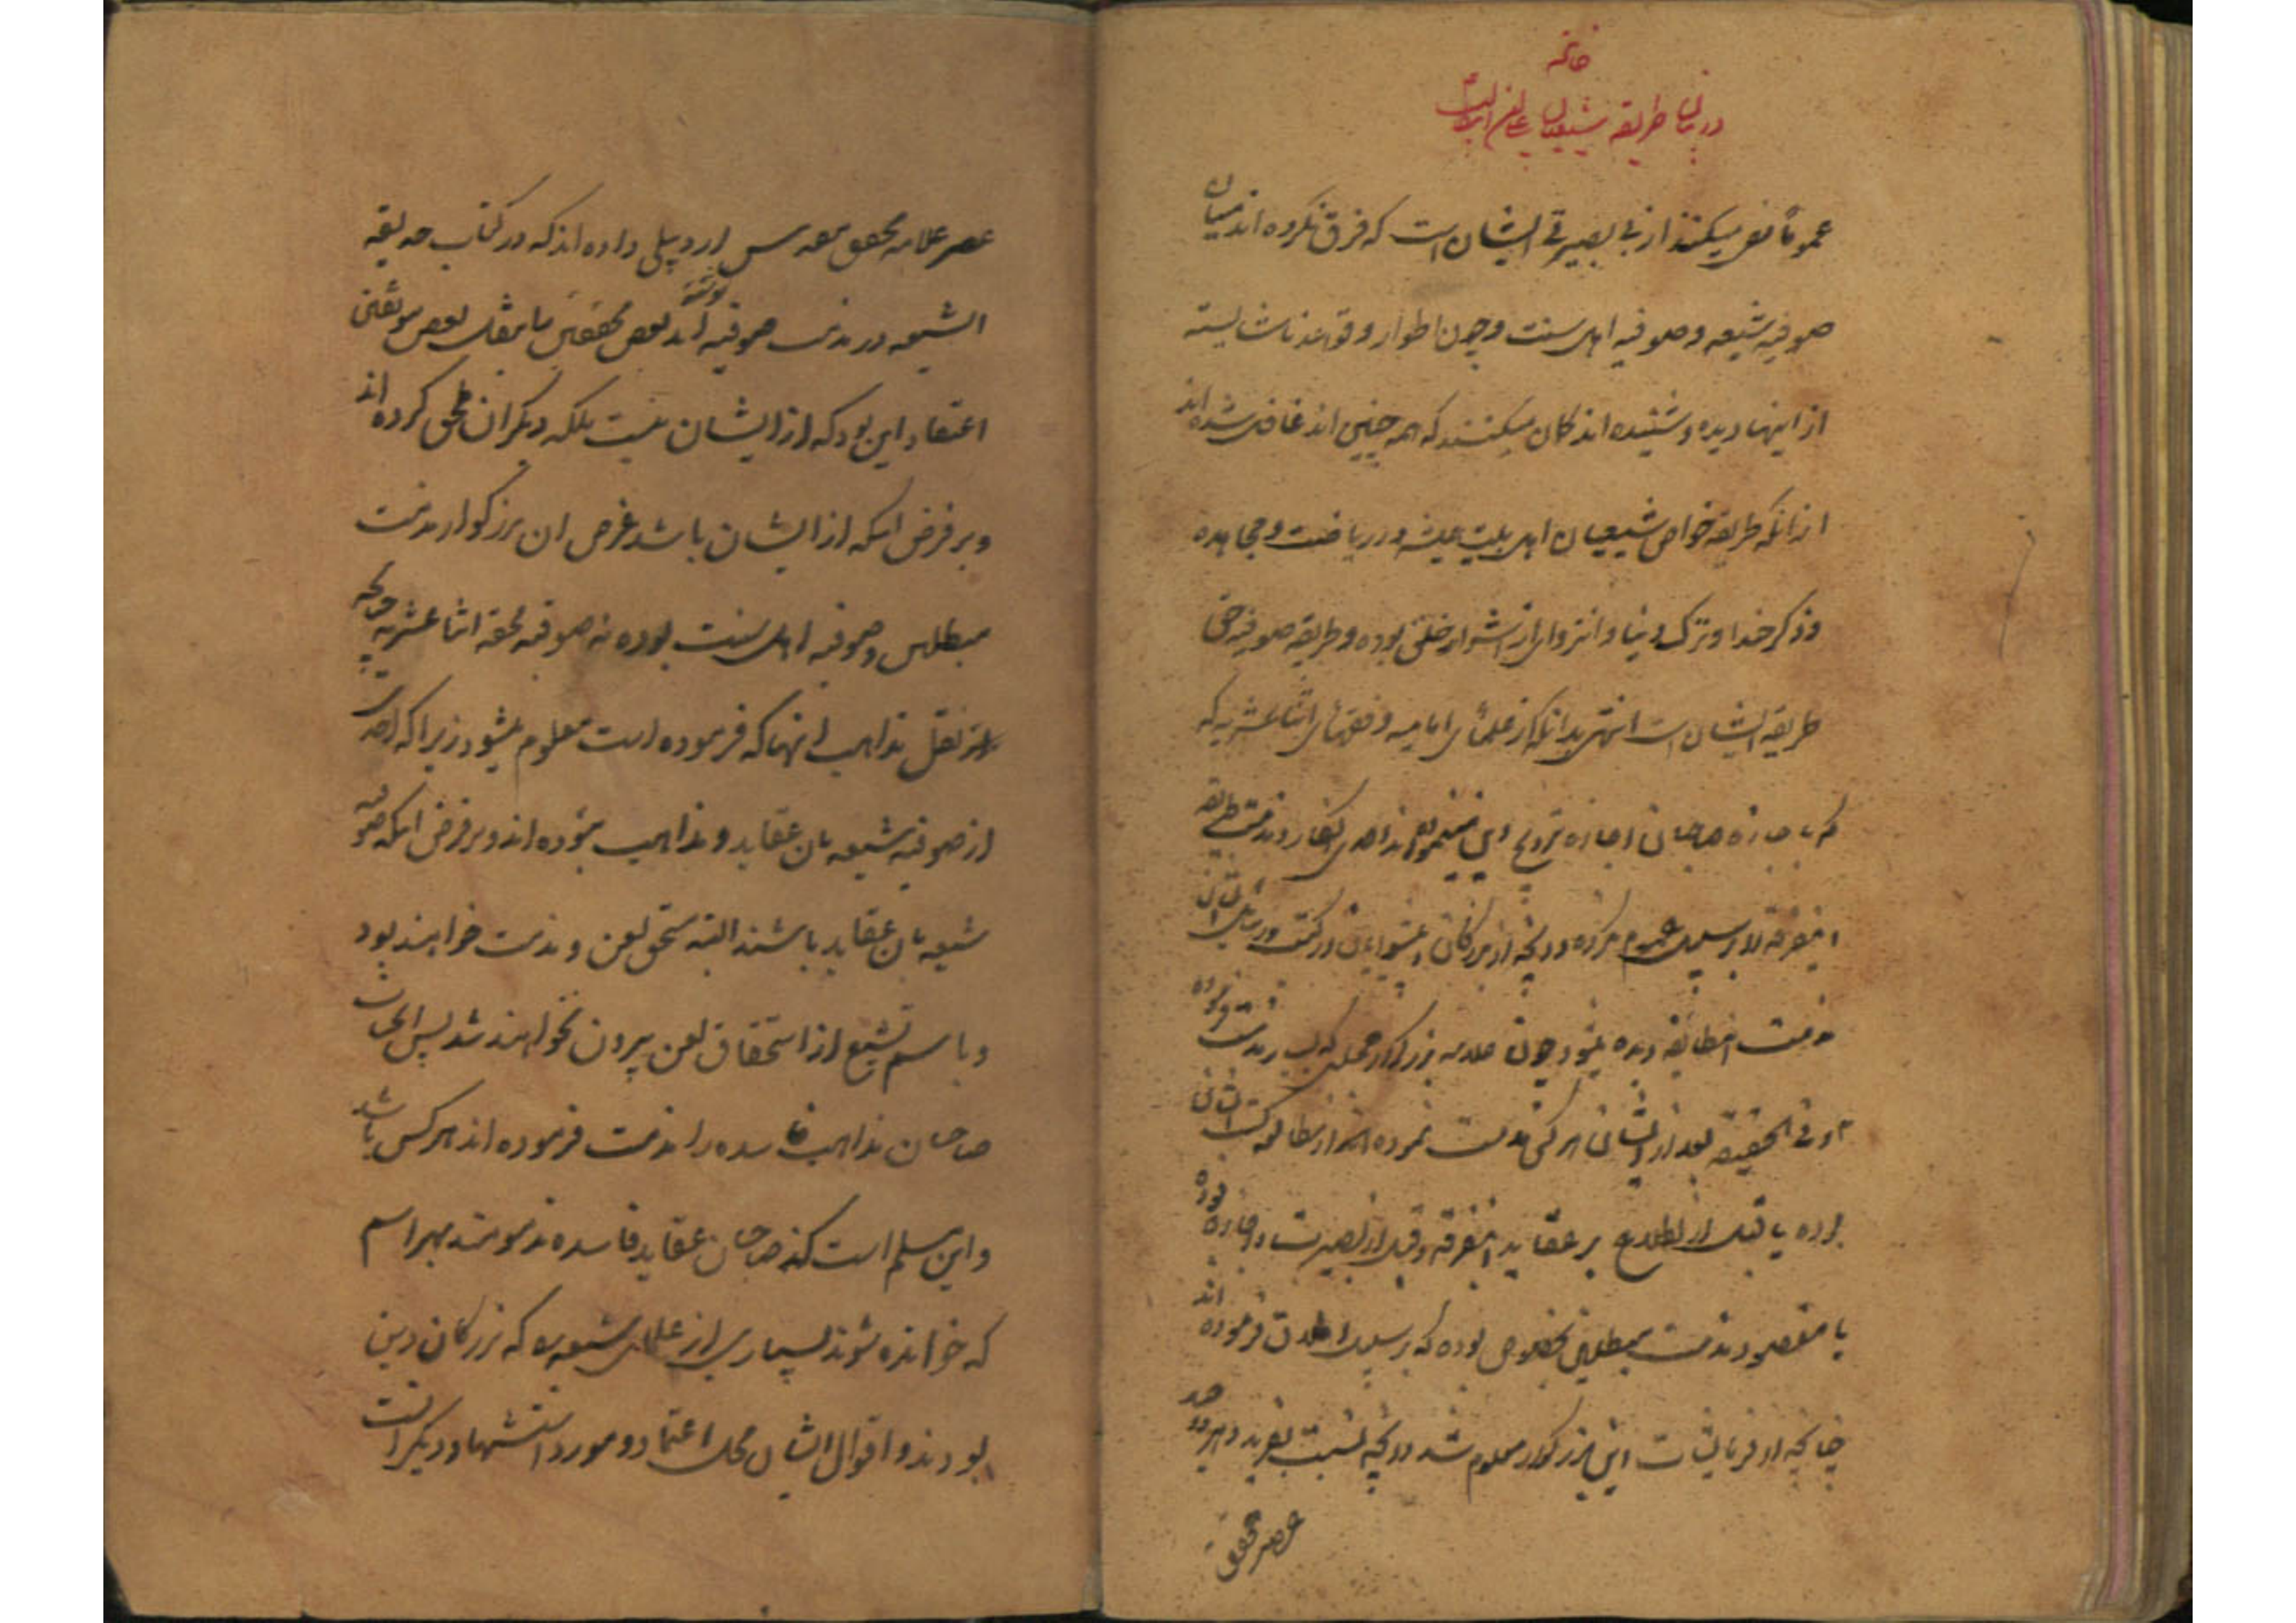 خاتمه
در بیان طریقه شیعیان
عموماً نفی میکنند از بی بصیرتی ایشان است که فرق نکرده اند میان
صوفیه شیعه و صوفیه اهل سنت و چون اطوار و قواعد ناشایسته
از اینها دیده و شنیده اند کمان میکنند که همه چنین اند غافل شده اند
از انکه طریقه خواص شیعیان اهل بیت همیشه ریاضت و مجاهده
و ذکر خدا و ترک دنیا و انزوای از اشرار خلق بوده و طریقه صوفیه حق
طریقه ایشان است انتهی بدانکه از علمای امامیه و فقهای اثناعشریه که
که باجازه صاحبان اجازه ترویج این احدی انکار و مذمت طایفه
اینفرقه را بر سبیل عموم نکرده و انچه از بزرگان و پیشوایان در کتب و رسایل ایشان
مذمت اینطایفه دیده میشود چون علامه بزرکوار
و فی الحقیقه بعد از ایشان هر کس مذمت نموده از مطالعه کتب ایشان
بوده یا قبل از اطلاع بر عقاید اینفرقه و قبل از بصیرت و اجازه بوده
یا مقصود مذمت مبطلین بخصوص بوده که بر سبیل اطلاق فرموده اند
چنانچه از فرمایشات این بزرکوار معلوم شد و انچه نسبت بفرید دهر و وحید
عصر محقق
عصر علامه محقق مقدس اردبیلی داده اند که در کتاب حدیقه
الشیعه در مذمت صوفیه نوشته اند بعض محققین ما بنقل بعض موثقین
اعتقاد این بود که از ایشان نیست بلکه دیکران ملحق کرده اند
و بر فرض اینکه از ایشان باشد غرض ان بزرکوار مذمت
مبطلین و صوفیه اهل سنت بوده نه صوفیه محقه اثناعشریه چنانچه
از نقل مذاهب انها که فرموده است معلوم میشود زیرا که احدی
از صوفیه شیعه بان عقاید و مذاهب نبوده اند و بر فرض اینکه صوفیه
شیعه بان عقاید باشند البته مستحق لعن و مذمت خواهند بود
و باسم تشیع از استحقاق لعن بیرون نخواهند شد پس ایشان
صاحبان مذاهب فاسده را مذمت فرموده اند هر کس باشد
و این مسلم است که صاحبان عقاید فاسده مذمومند بهر اسم
که خوانده شوند بسیاری از علمای شیعه که بزرکان دین
بودند و اقوال ایشان محل اعتماد و مورد استشهاد دیکران است